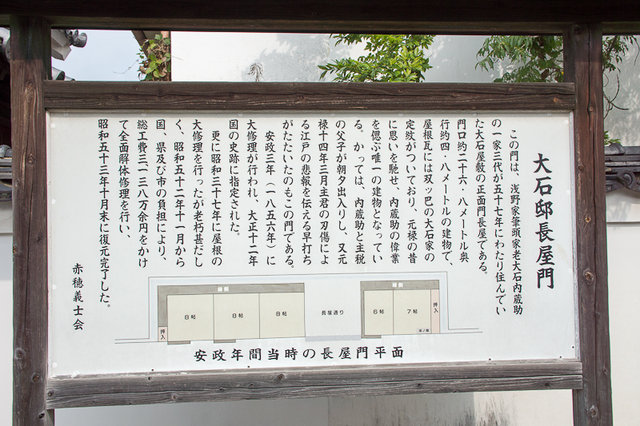 大石邸長屋門
この門は、浅野家筆頭家老大石内蔵助
の一家三代が五十七年にわたり住んでい
た大石屋敷の正面門長屋である。
門口約二十六・八メートル奥
行約四・八メートルの建物で、
屋根瓦には双ッ巴の大石家の
定紋がついており、元禄の昔
に思いを馳せ、内蔵助の偉業
を偲ぶ唯一の建物となってい
る。かっては、内蔵助と主税
の父子が朝夕出入りし、又元
禄十四年三月主君の刃傷によ
る江戸の悲報を伝える早打ち
がたたいたのもこの門である。
安政三年(一八五六年)に
大修理が行われ、大正十二年
国の史跡に指定された。
更に昭和三十七年に屋根の
大修理を行ったが老朽甚だし
く、昭和五十二年十一月から
国、県及び市の負担により、
総工費三一三八万余円をかけ
て全面解体修理を行い、
昭和五十三年十月末に復元完了した。
赤穂義士会
縁側
押入
8帖
8帖
8帖
長屋通り
縁側
6帖
7帖
押入
安政年間当時の長屋門平面